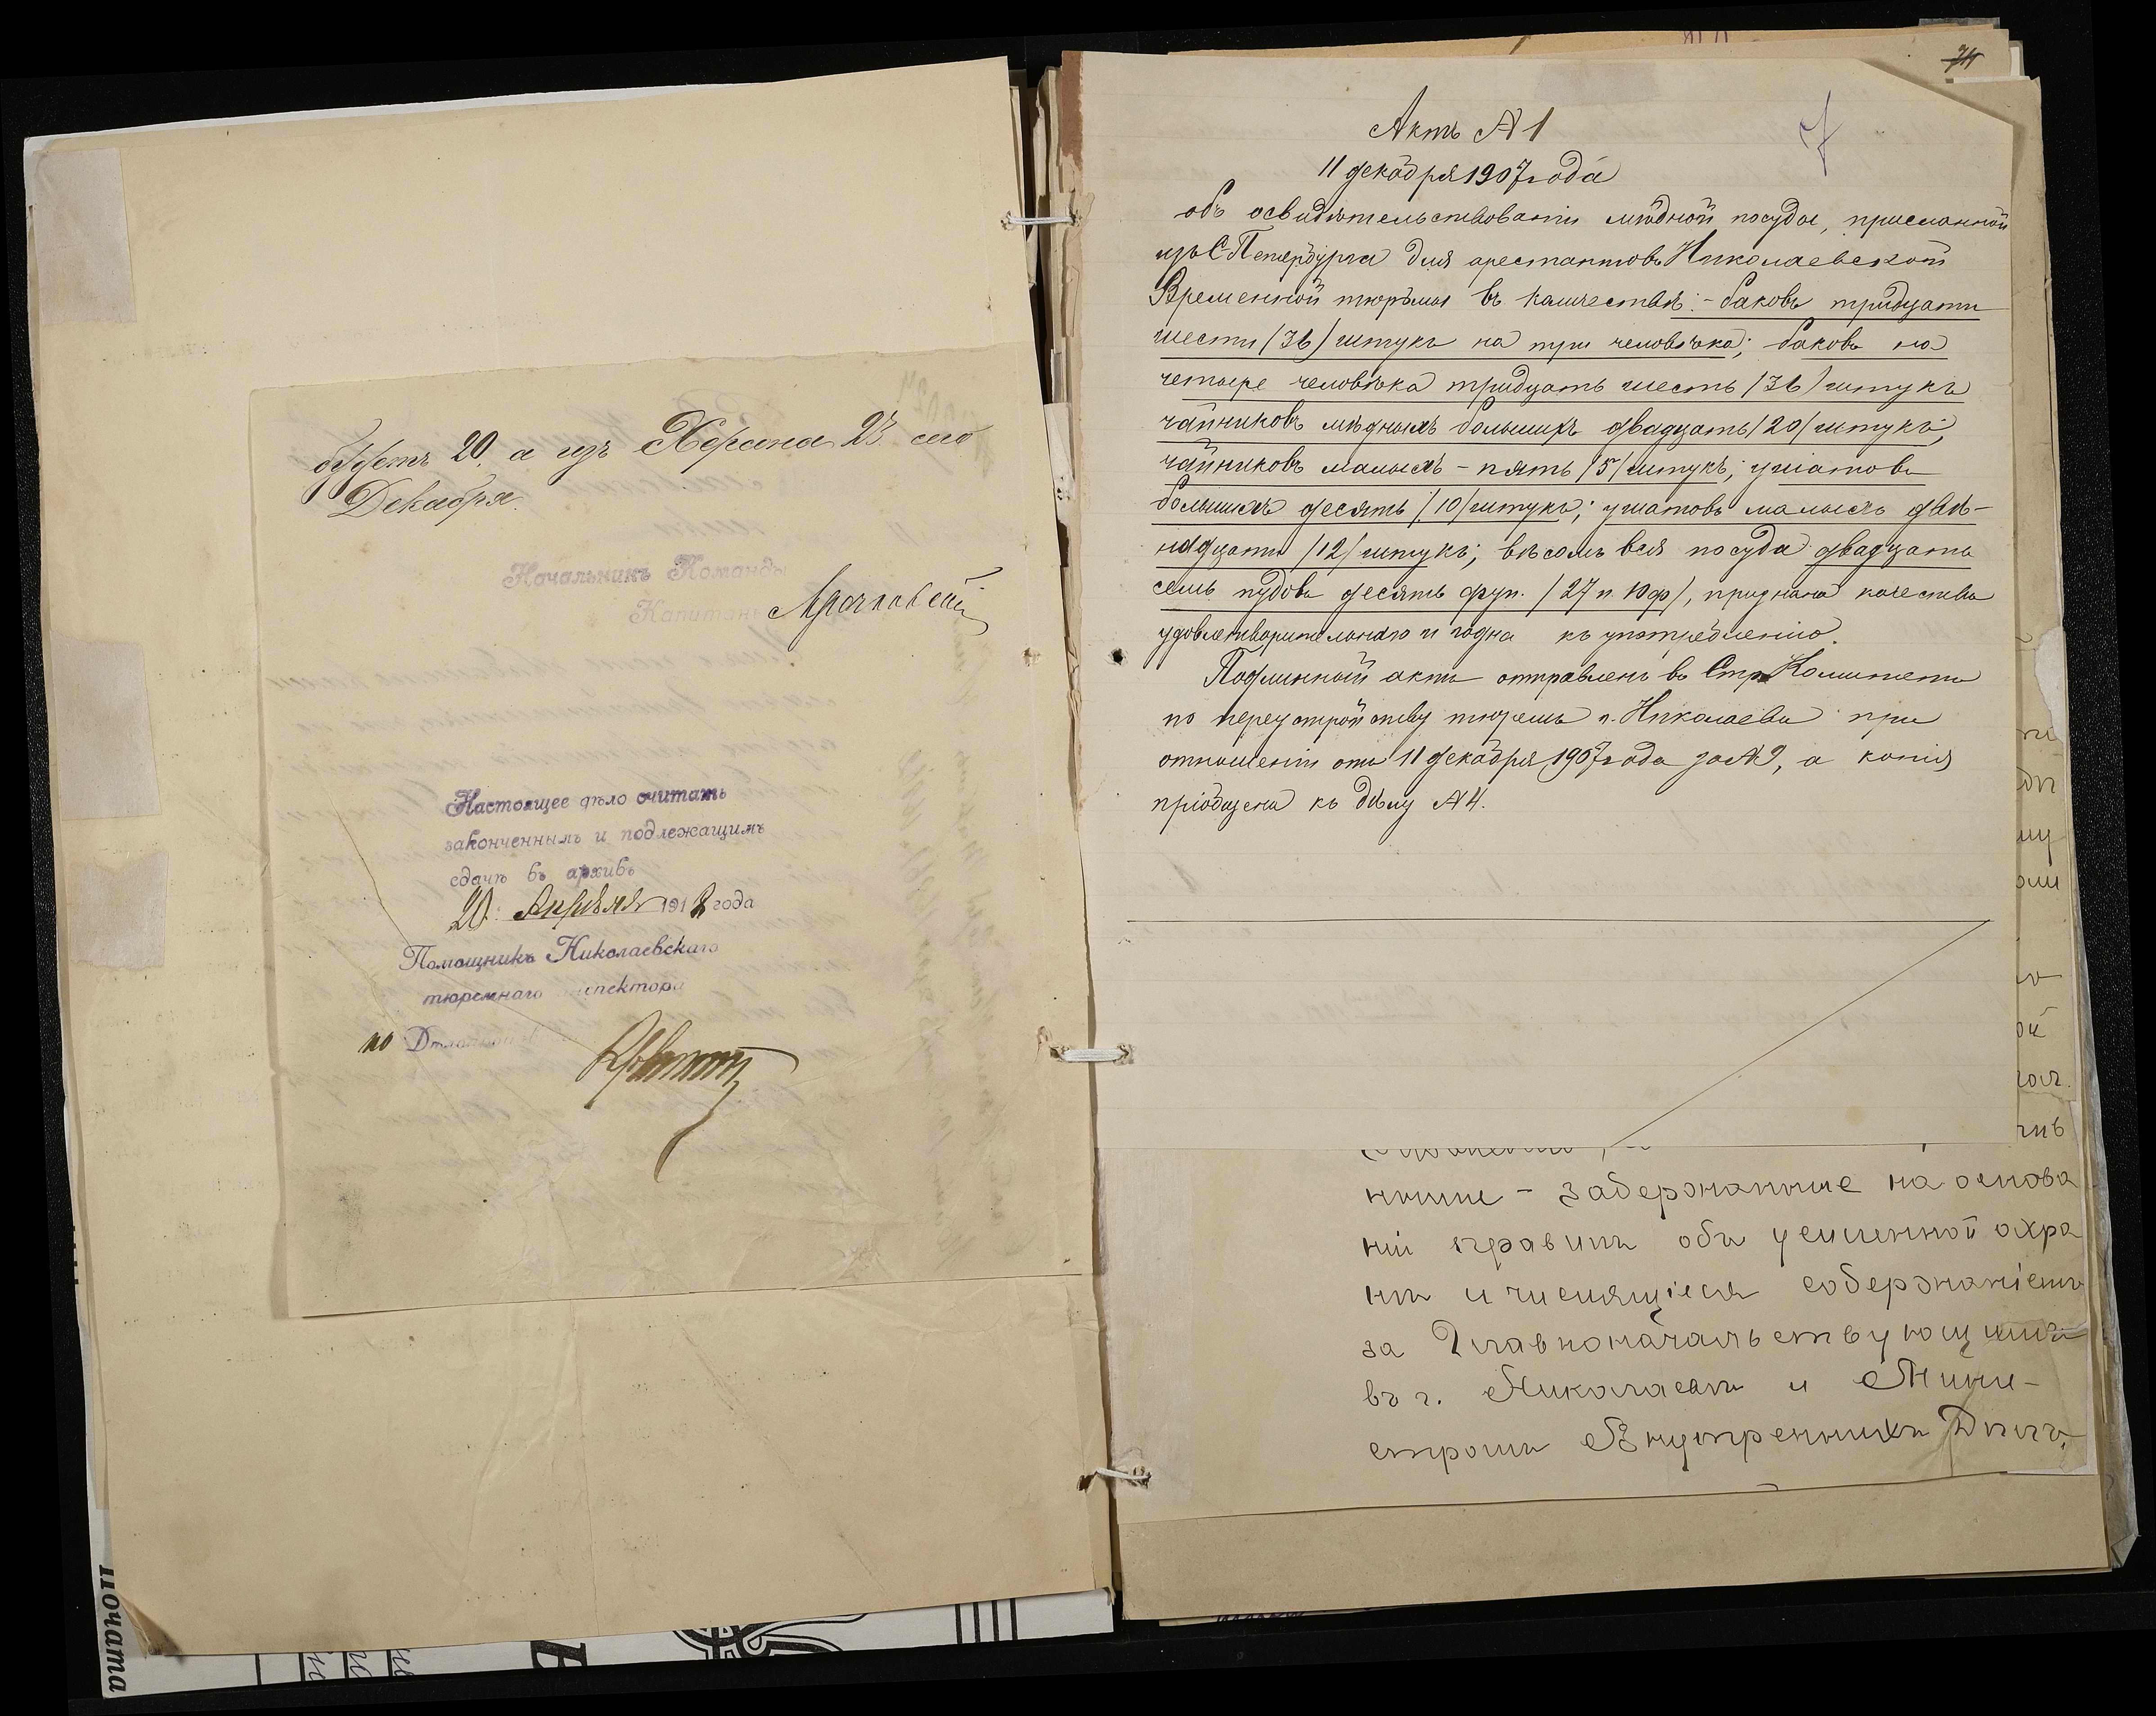 будетъ 20, а изъ Херсона 23 сего
Декабря.
Начальникъ Команды
Капитанъ
Настоящее дѣло считать
законченнымъ и подлежащимъ
сдачѣ въ архивъ
20 Апрѣля 1912 года
Помощникъ Николаевскаго
тюремнаго инспектора
по
Актъ № 1
7
11 декабря 1907 года
объ освидѣтельствованіи мѣдной посуды, присланной
изъ С-Петербурга для арестантовъ Николаевской
Временной тюрьмы въ количествѣ: - баковъ тридцати
шести /36/ штукъ на три человѣка; баковъ на
четыре человѣка тридцать шесть /36/ штукъ
чайниковъ мѣдныхъ большихъ двадцать /20/ штукъ;
чайниковъ малыхъ - пять /5/ штукъ; ушатовъ
большихъ десять /10/ штукъ; ушатовъ малыхъ двѣ-
надцать /12/ штукъ; вѣсомъ вся посуда двадцать
семь пудовъ десять фун. /27 п. 10 ф/, признана качества
удовлетворительнаго и годна къ употребленію.
Подлинный актъ отправленъ въ Стр. Комитетъ
по переустройству тюремъ г. Николаева при
отношеніи отъ 11 декабря 1907 года за № 9, а копія
пріобщена къ дѣлу № 4.
ные - задержанные на основа
ніи правилъ объ усиленной охра
нѣ и числящіеся содержаніемъ
за Главноначальствующимъ
въ г. Николаевѣ и Мини-
стромъ Внутреннихъ Дѣлъ,
Почата